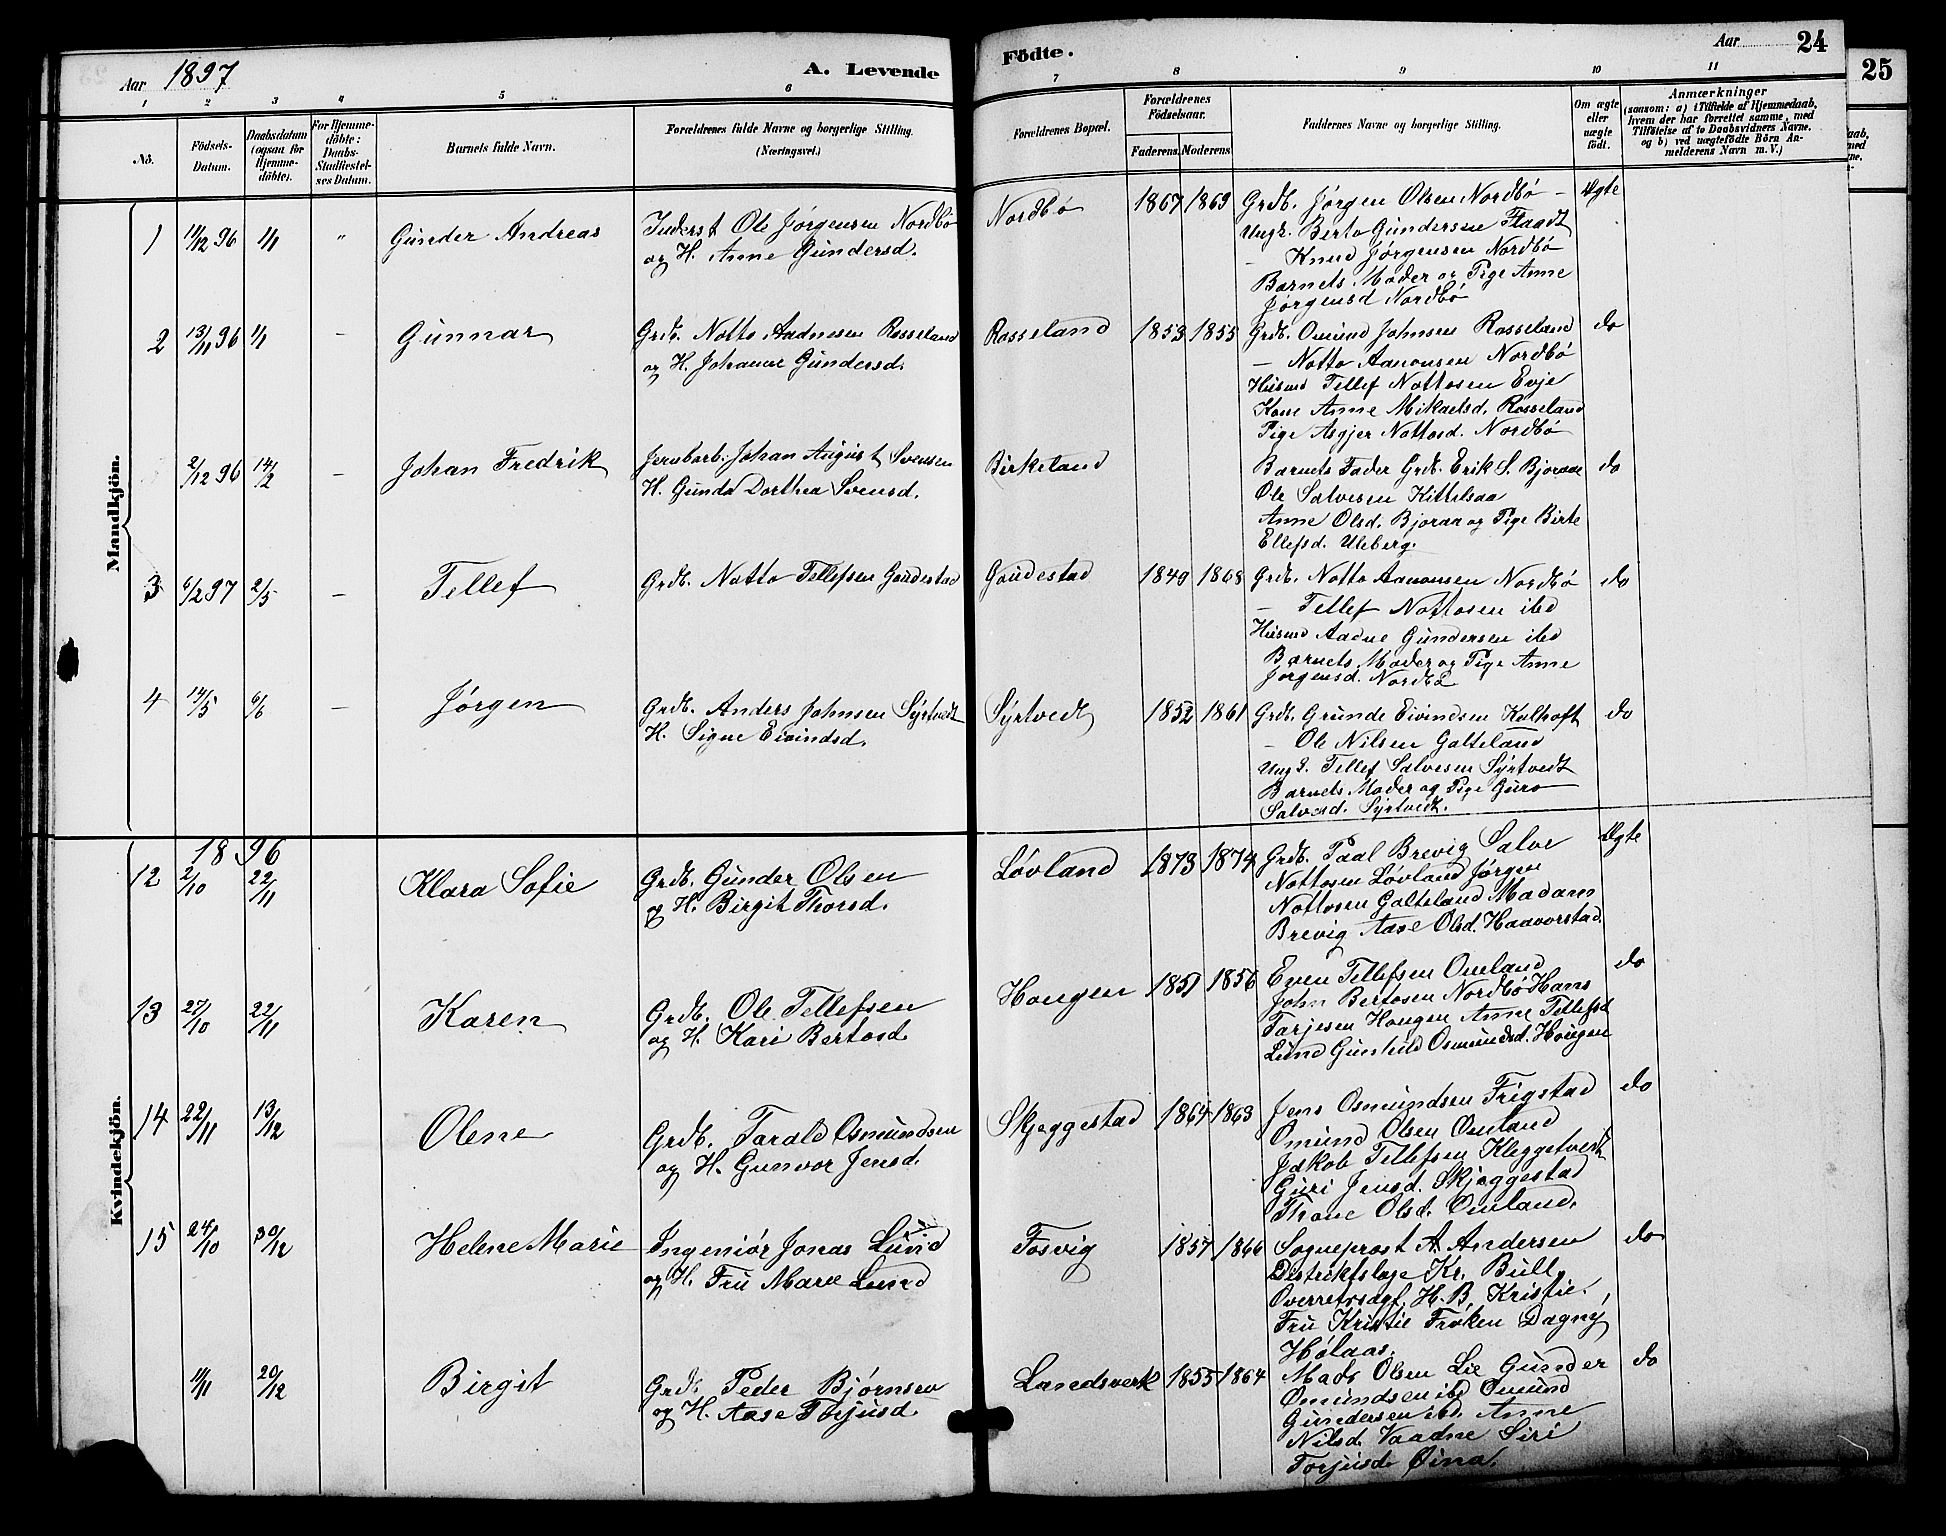 Aar 1897
A. Levende
Födte.
Aar
24
25
1 2 3 4 5 6 7 8 9 10 11
No.
Födsels-
Datum.
Daabsdatum
(ogsaa for
Hjemme-
döbte).
For Hjemme-
döbte:
Daabs-
Stadfæstel-
ses Datum.
Barnets fulde Navn.
Forældrenes fulde Navne og borgerlige Stilling.
(Næringsvei.)
Forældrenes Bopæl.
Forældrenes
Födselsaar.
Faderens. Moderens.
Faddernes Navne og borgerlige Stilling.
Om ægte
eller
uægte
födt.
Anmærkninger
(saasom: a) i Tilfælde af Hjemmedaab,
hvem der har forrettet samme, med
Tilföielse af to Daabsvidners Navne.
og b) ved uægtefödte Börn An-
melderens Navn m. V.)
Mandkjön.
1 11/12 96 1/1 " Gunder Andreas
Inderst Ole Jørgensen Nordbø
og H. Anne Gundersd.
Nordbø 1867 1869
Grdb. Jørgen Olsen Nordbø –
Ungk. Berto Gundersen Flaadt
– Knud Jørgensen Nordbø
Barnets Moder og Pige Anne
Jørgensd Nordbø
Ægte
2 13/11 96 1/1 – Gunnar
Grdb. Notto Aadnesen Rosseland
og H. Johanne Gundersd.
Rosseland 1853 1855
Grdb. Omund Johnsen Rosseland
– Notto Aanonsen Nordbø
Husmd Tellef Nottosen Evje
Kone Anne Mikaelsd. Rosseland
Pige Asgjer Nottosd. Nordbø
do
2/12 96 14/2 – Johan Fredrik
Jernbarb. Johan August Svensen
H. Gunda Dorthea Svensd.
Birkeland
Barnets Fader Grdb. Erik S. Bjoraa
Ole Salvesen Kittelsaa
Anne Olsd. Bjoraa og Pige Birte
Ellefsd. Uleberg.
do
3 6/2 97 2/5 – Tellef
Grdb. Notto Tellefsen Gaudestad
Gaudestad 1840 1868
Grdb. Notto Aanonsen Nordbø
– Tellef Nottosen ibd
Husmd Aadne Gundersen ibd
Barnets Moder og Pige Anne
Jørgensd. Nordbø
do
4 14/5 6/6 – Jørgen
Grdb. Anders Johnsen Syrtvedt
H. Signe Eivindsd.
Syrtvedt 1852 1861
Grdb. Grunde Eivindsen Kalhoft
– Ole Nilsen Galteland
Ungk. Tellef Salvesen Syrtvedt
Barnets Moder og Pige Guro
Salvesd. Syrtvedt.
do
Kvindekjön.
1896
12 2/10 22/11 Klara Sofie
Grdb. Gunder Olsen
og H. Birgit Thorsd.
Løvland 1873 1874
Grdb. Paal Brevig Salve
Nottosen Løvland Jørgen
Nottosen Galteland Madam
Brevig Aase Olsd. Haavorstad.
Ægte
13 27/10 22/11 Karen
Grdb. Ole Tellefsen
og H. Kari Bertosd.
Hougen 1851 1856
Even Tellefsen Omland
John Bertosen Nordbø Hans
Tarjesen Hougen Anne Tellefsd
Lund Gunhild Osmundsd. Hougen
do
14 22/11 13/12 Olene
Grdb. Tarald Osmundsen
og H. Gunvor Jensd.
Skjeggestad 1864 1863
Jens Osmundsen Frigstad
Omund Olsen Omland
Jakob Tellefsen Kleggetvedt
Guri Jensd. Skjeggestad
Thone Olsd. Omland.
do
15 24/10 30/12 Helene Marie
Ingeniør Jonas Lund
og H. Fru Marie Lund
Fosvig 1857 1866
Sogneprost A. Andersen
Distriktslæge Kr. Bull
Overretssagf. H. B. Kristie.
Fru Kristie Frøken Dagny
Hølaas.
do
11/11 20/12 Birgit
Grdb. Peder Bjørnsen
og H. Aase Torjusd.
Landsverk 1855 1864
Mads Olsen Lie Gunder
Omundsen ibd Omund
Gundersen ibd. Anne
Nilsd. Vaadne Siri
Torjusd. Øina.
do